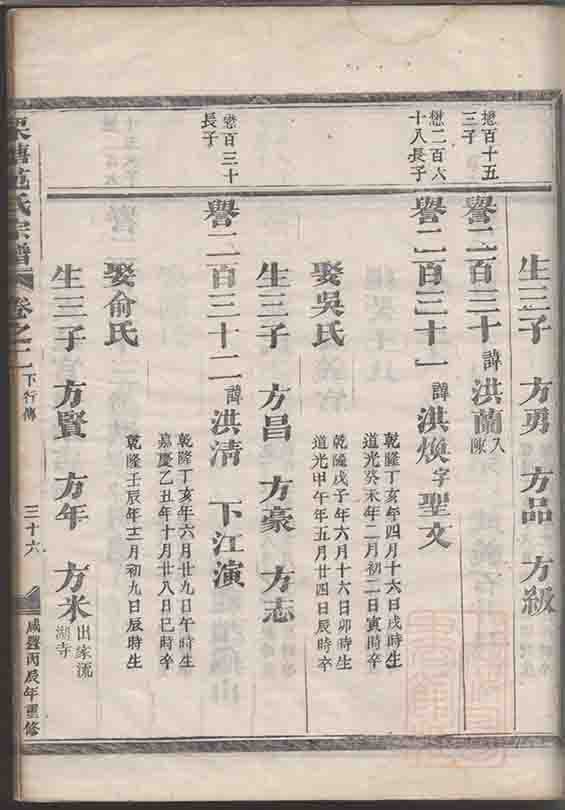 生三子 方勇 方品 方級
懋百十五
三子
譽二百三十 諱洪蘭 入陳
懋二百六
十八長子
譽二百三十一 諱洪煥 字聖文
乾隆丁亥年四月十六日戌時生
道光癸未年二月初二日寅時卒
娶吳氏
乾隆戊子年六月十六日卯時生
道光甲午年五月廿四日辰時卒
生三子 方昌 方豪 方志
懋百三十
長子
譽二百三十二 諱洪清 下江演
乾隆丁亥年六月廿九日午時生
嘉慶乙丑年十月廿八日巳時卒
娶俞氏
乾隆壬辰年十二月初九日辰時生
生三子 方賢 方年 方米 出家流
湖寺
氏宗譜 卷之二 下行傳 三十六 咸豐丙辰年重修